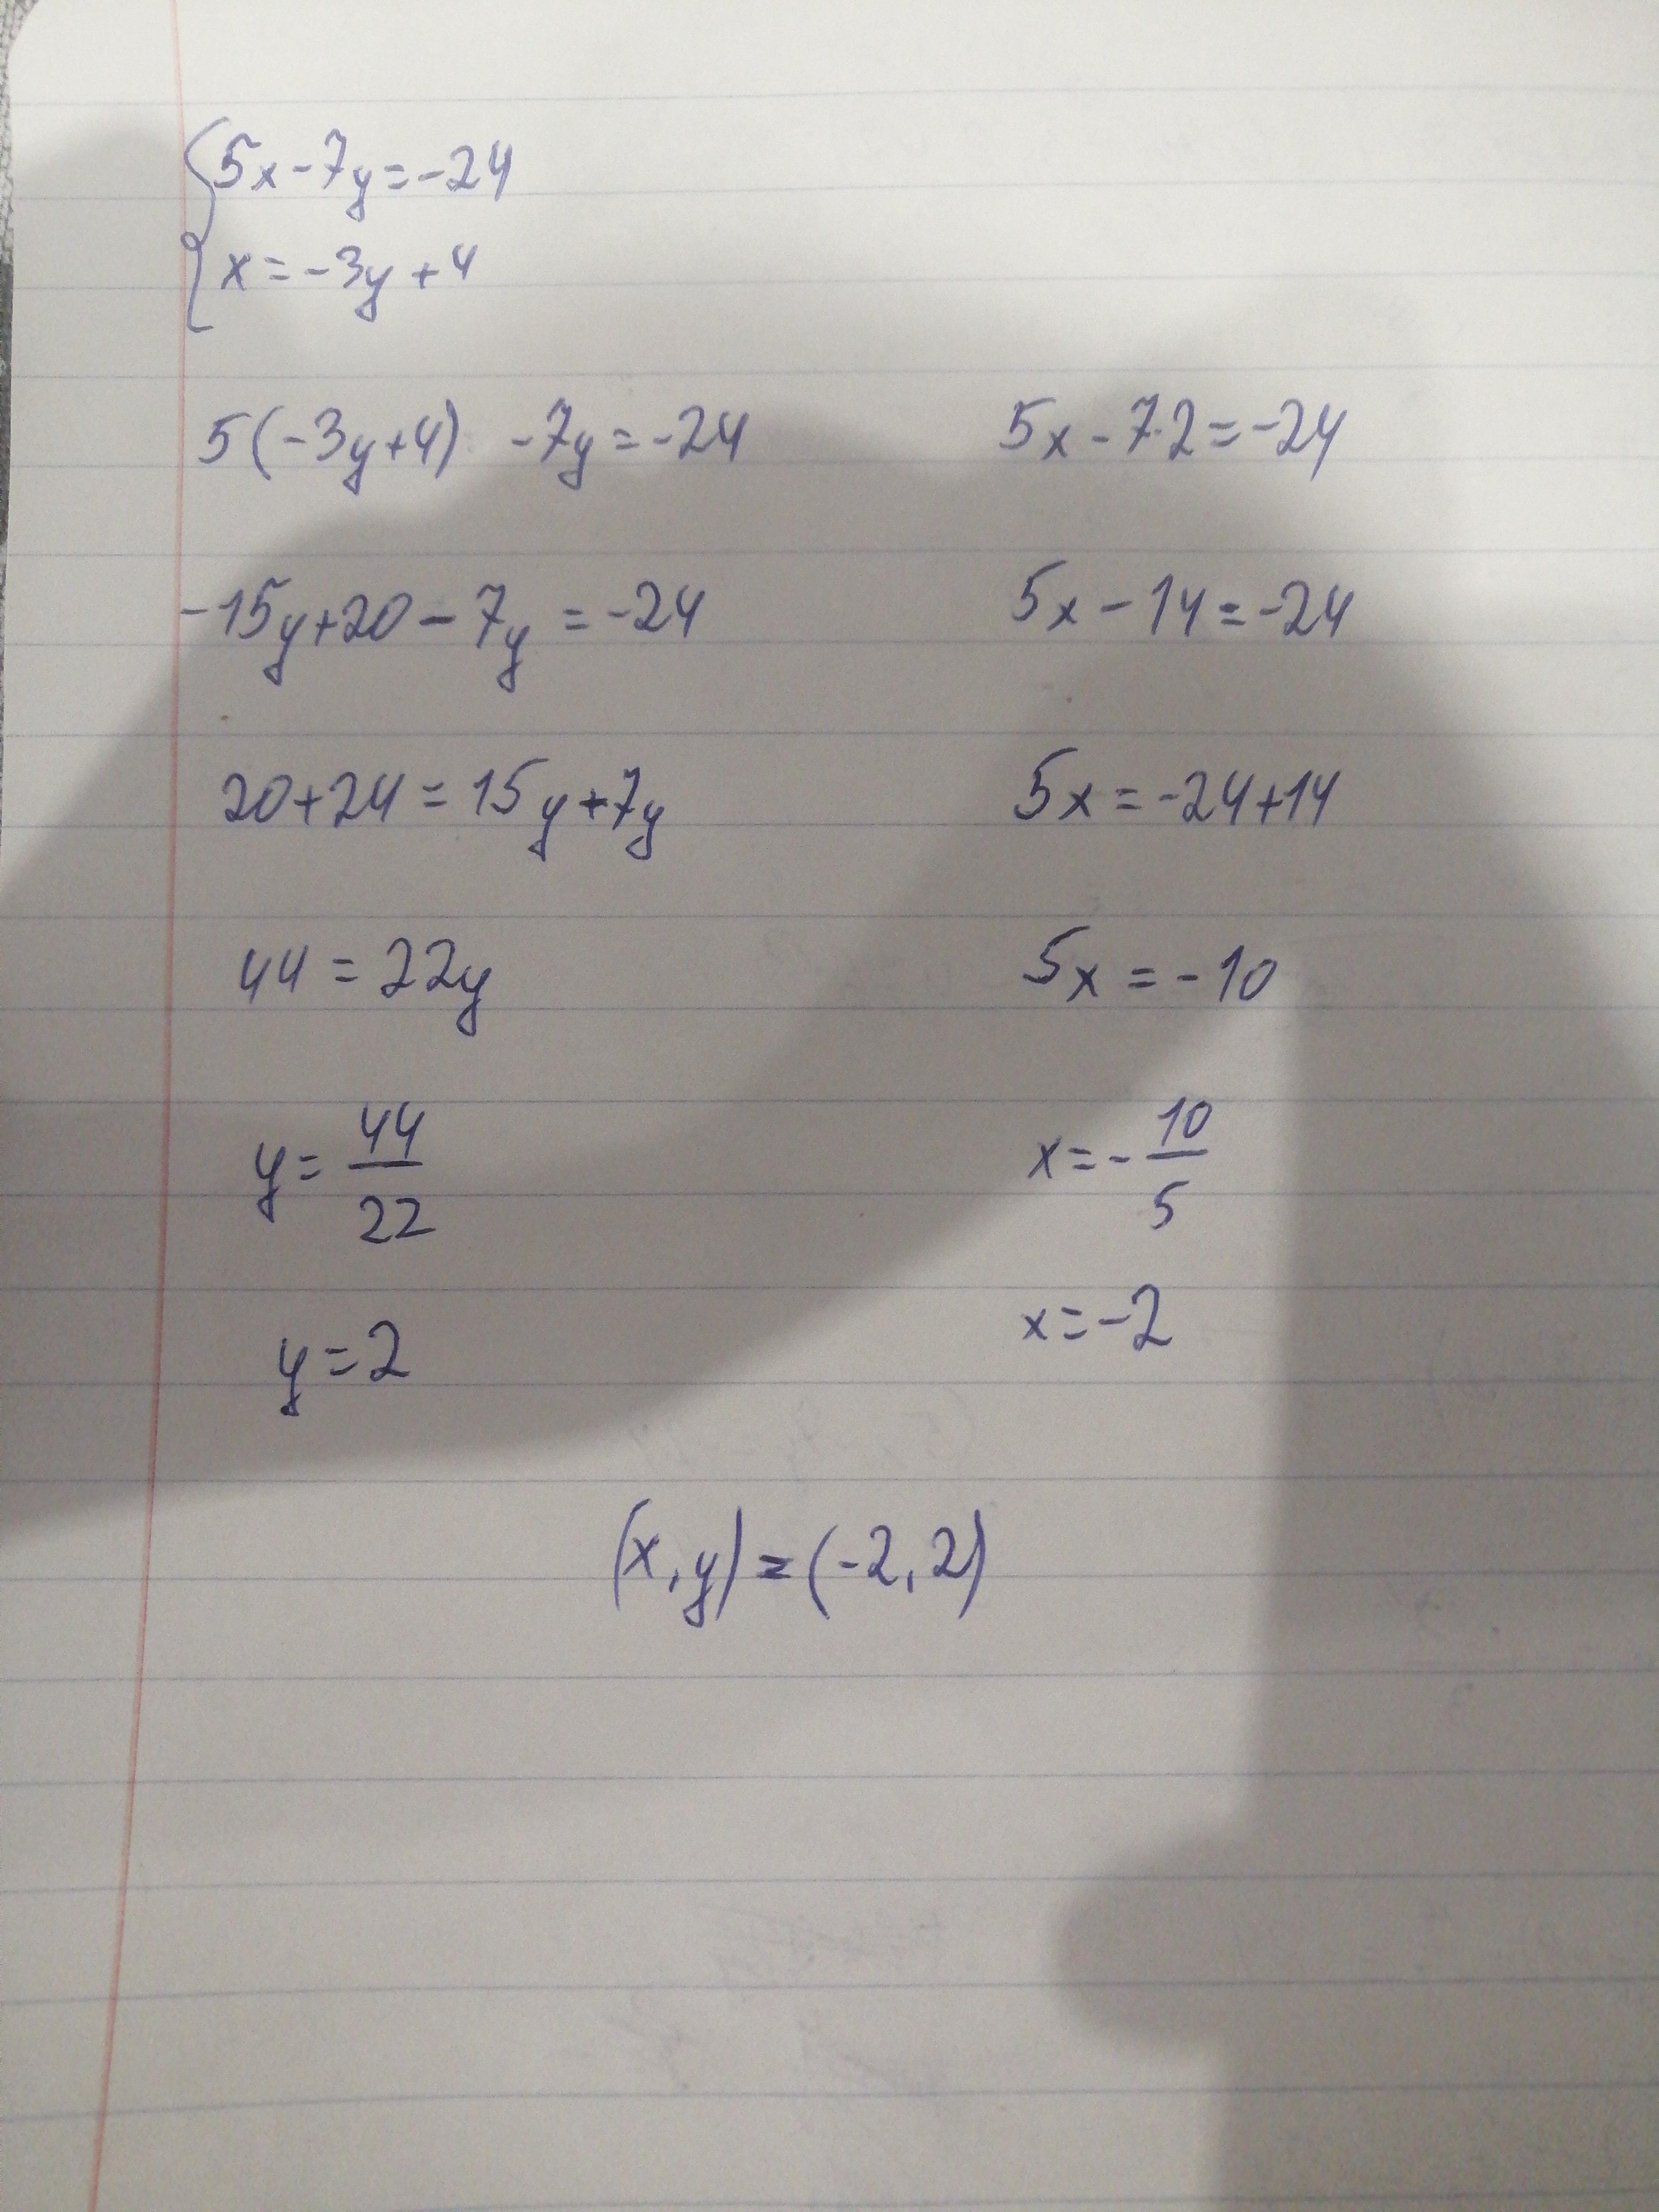 5x-7y=-24
x=-3y+4
5(-3y+4) -7y=-24
-15y+20-7y=-24
20+24=15y+7y
44=22y
y=44/22
y=2
5x-7·2=-24
5x-14=-24
5x=-24+14
5x=-10
x=-10/5
x=-2
(x,y)=(-2,2)